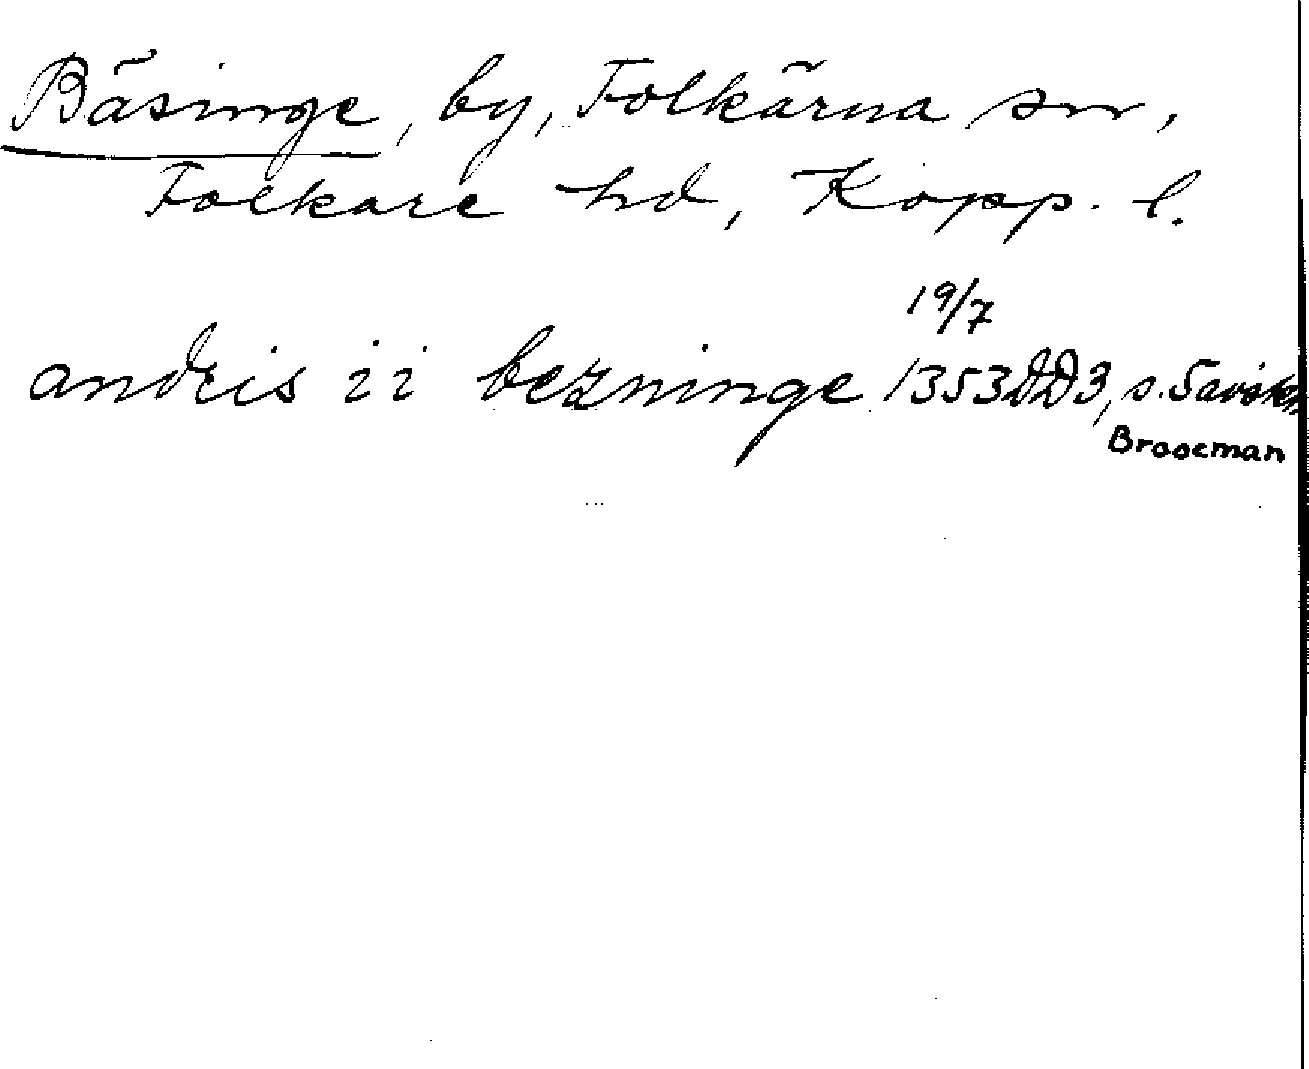 Bäsinge, by, Folkärna sn,
Folkare hd, Kopp. l.
19/7
andris ii bezninge 1353 DD3, s.
Broocman